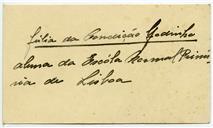 Júlia da Conceição Godinho
aluna da Escóla Normal Primá
ria de Lisboa